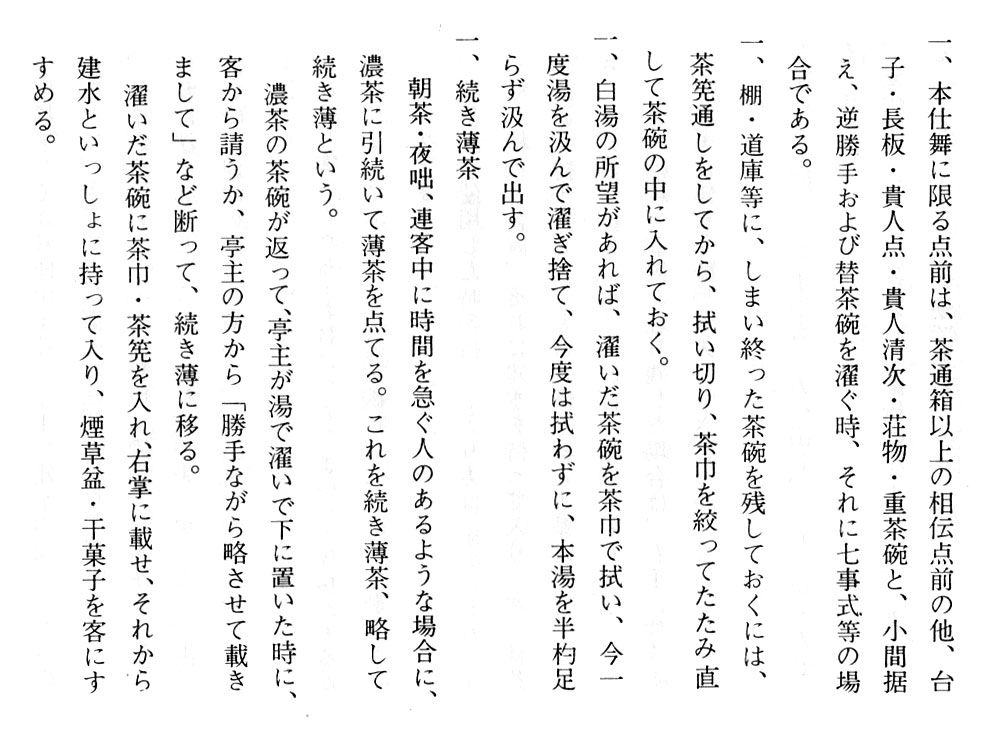 一、本仕舞に限る点前は、茶通箱以上の相伝点前の他、台
子・長板・貴人点・貴人清次・荘物・重茶碗と、小間据
え、逆勝手および替茶碗を濯ぐ時、それに七事式等の場
合である。
一、棚・道庫等に、しまい終った茶碗を残しておくには、
茶筅通しをしてから、拭い切り、茶巾を絞ってたたみ直
して茶碗の中に入れておく。
一、白湯の所望があれば、濯いだ茶碗を茶巾で拭い、今一
度湯を汲んで濯ぎ捨て、今度は拭わずに、本湯を半杓足
らず汲んで出す。
一、続き薄茶
朝茶・夜咄、連客中に時間を急ぐ人のあるような場合に、
濃茶に引続いて薄茶を点てる。これを続き薄茶、略して
続き薄という。
濃茶の茶碗が返って、亭主が湯で濯いで下に置いた時に、
客から請うか、亭主の方から「勝手ながら略させて載き
まして」など断って、続き薄に移る。
濯いだ茶碗に茶巾・茶筅を入れ、右掌に載せ、それから
建水といっしょに持って入り、煙草盆・干菓子を客にす
すめる。